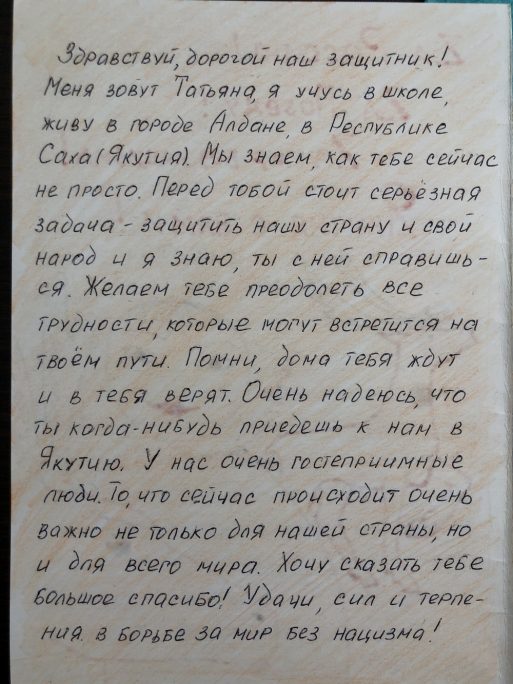 Здравствуй, дорогой наш защитник!
Меня зовут Татьяна, я учусь в школе,
живу в городе Алдане, в Республике
Саха (Якутия). Мы знаем, как тебе сейчас
не просто. Перед тобой стоит серьёзная
задача - защитить нашу страну и свой
народ и я знаю, ты с ней справишь-
ся. Желаем тебе преодолеть все
трудности, которые могут встретится на
твоём пути. Помни, дома тебя ждут
и в тебя верят. Очень надеюсь, что
ты когда-нибудь приедешь к нам в
Якутию. У нас очень гостеприимные
люди. То, что сейчас происходит очень
важно не только для нашей страны, но
и для всего мира. Хочу сказать тебе
большое спасибо! Удачи, сил и терпе-
ния в борьбе за мир без нацизма!